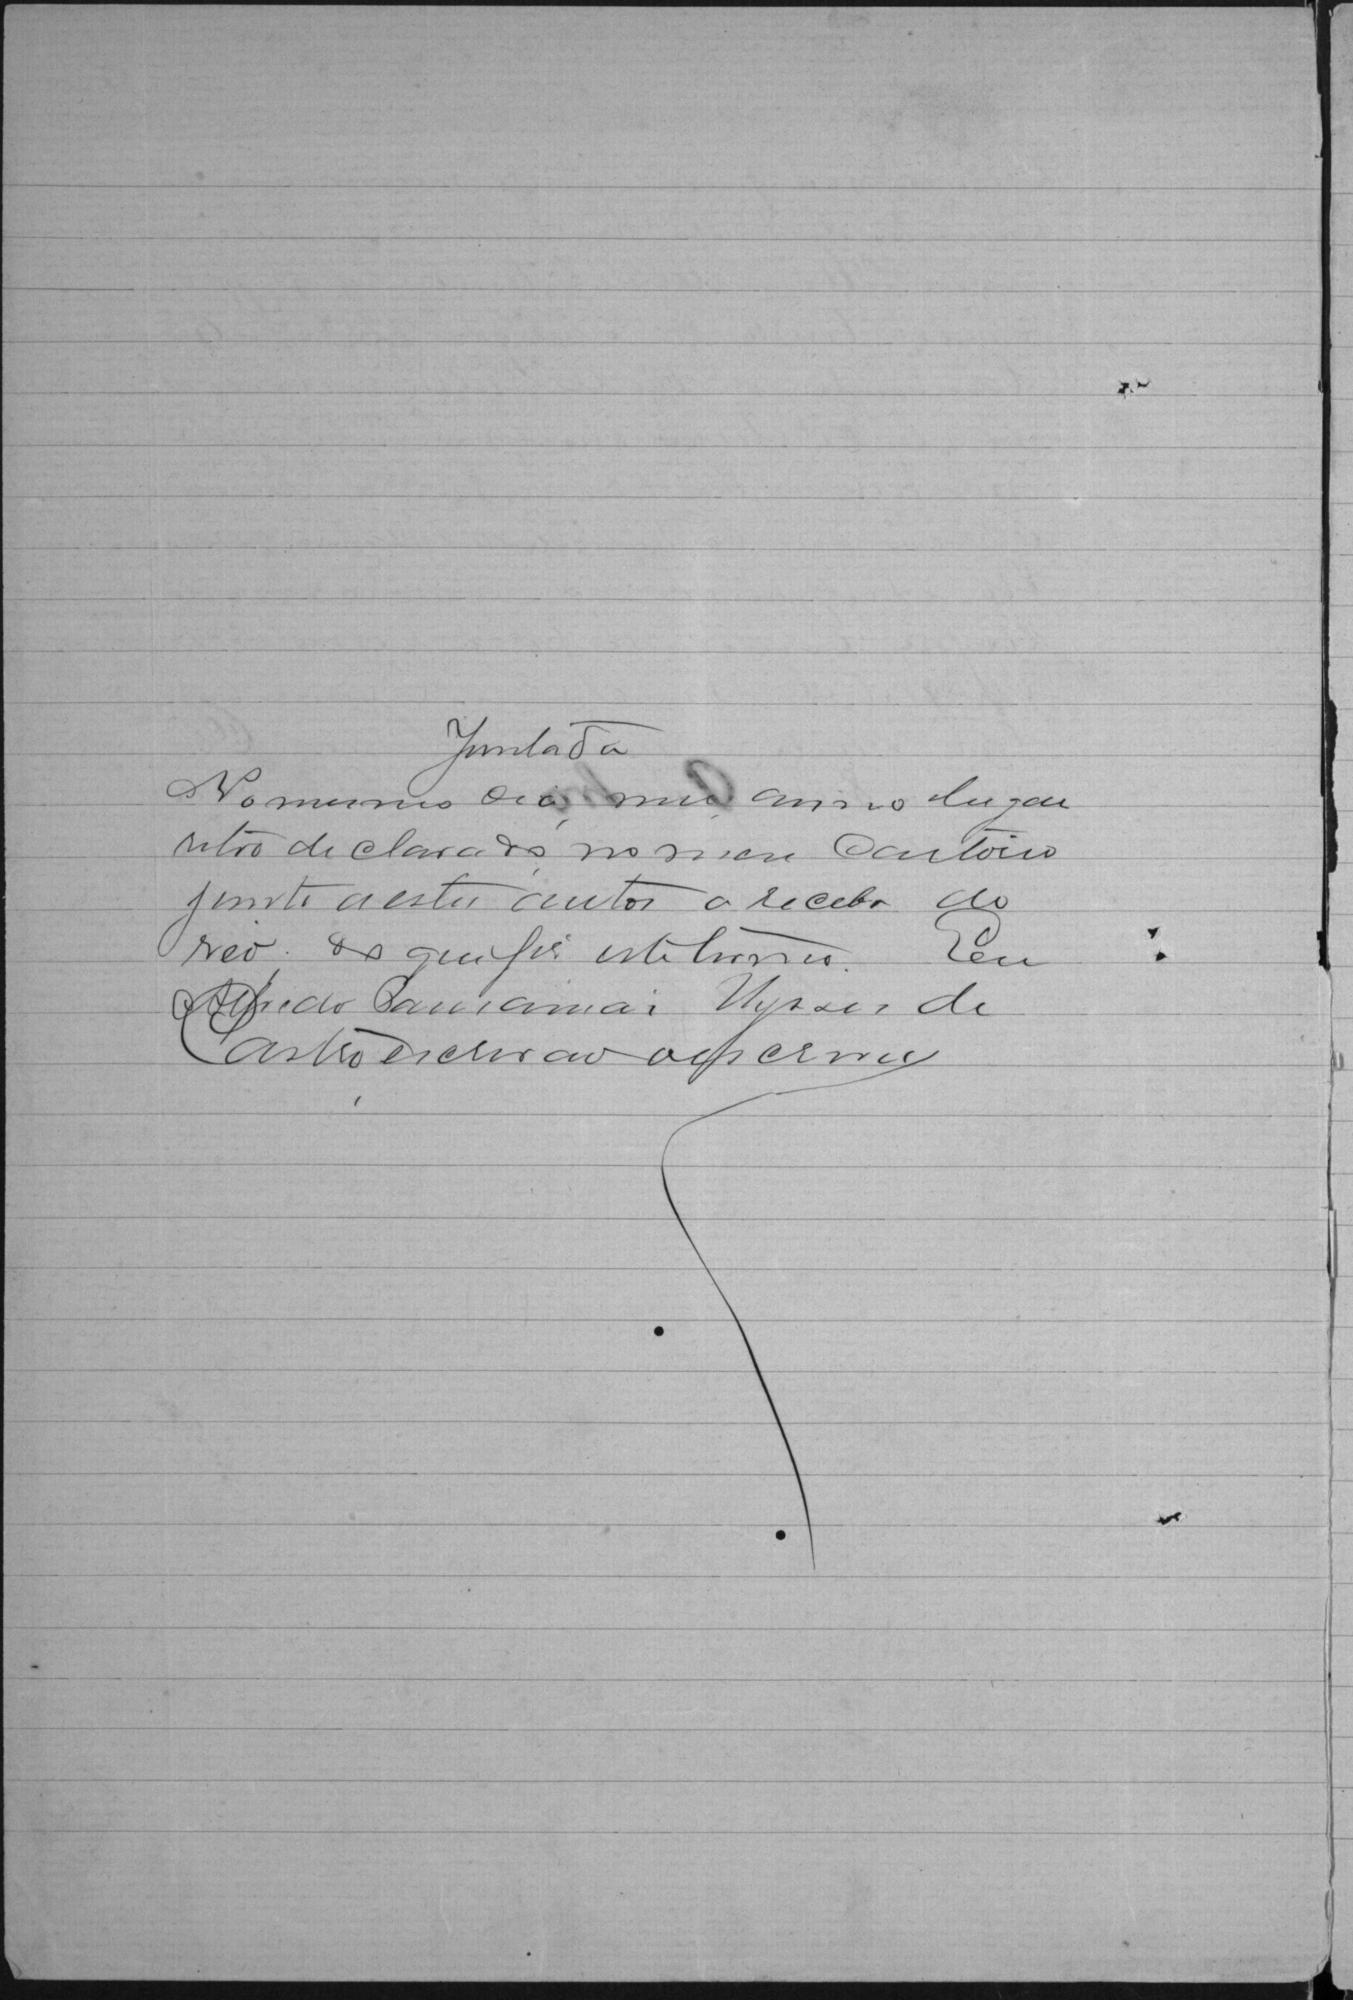 Juntada
No mesmo dia, mez, anno e lugar
retro declarado, no meu Cartorio
junto a estes autos o recebo do
réo. do que fiz este termo. Eu
Alfredo Ulysses de
Castro escrivão o escrevy